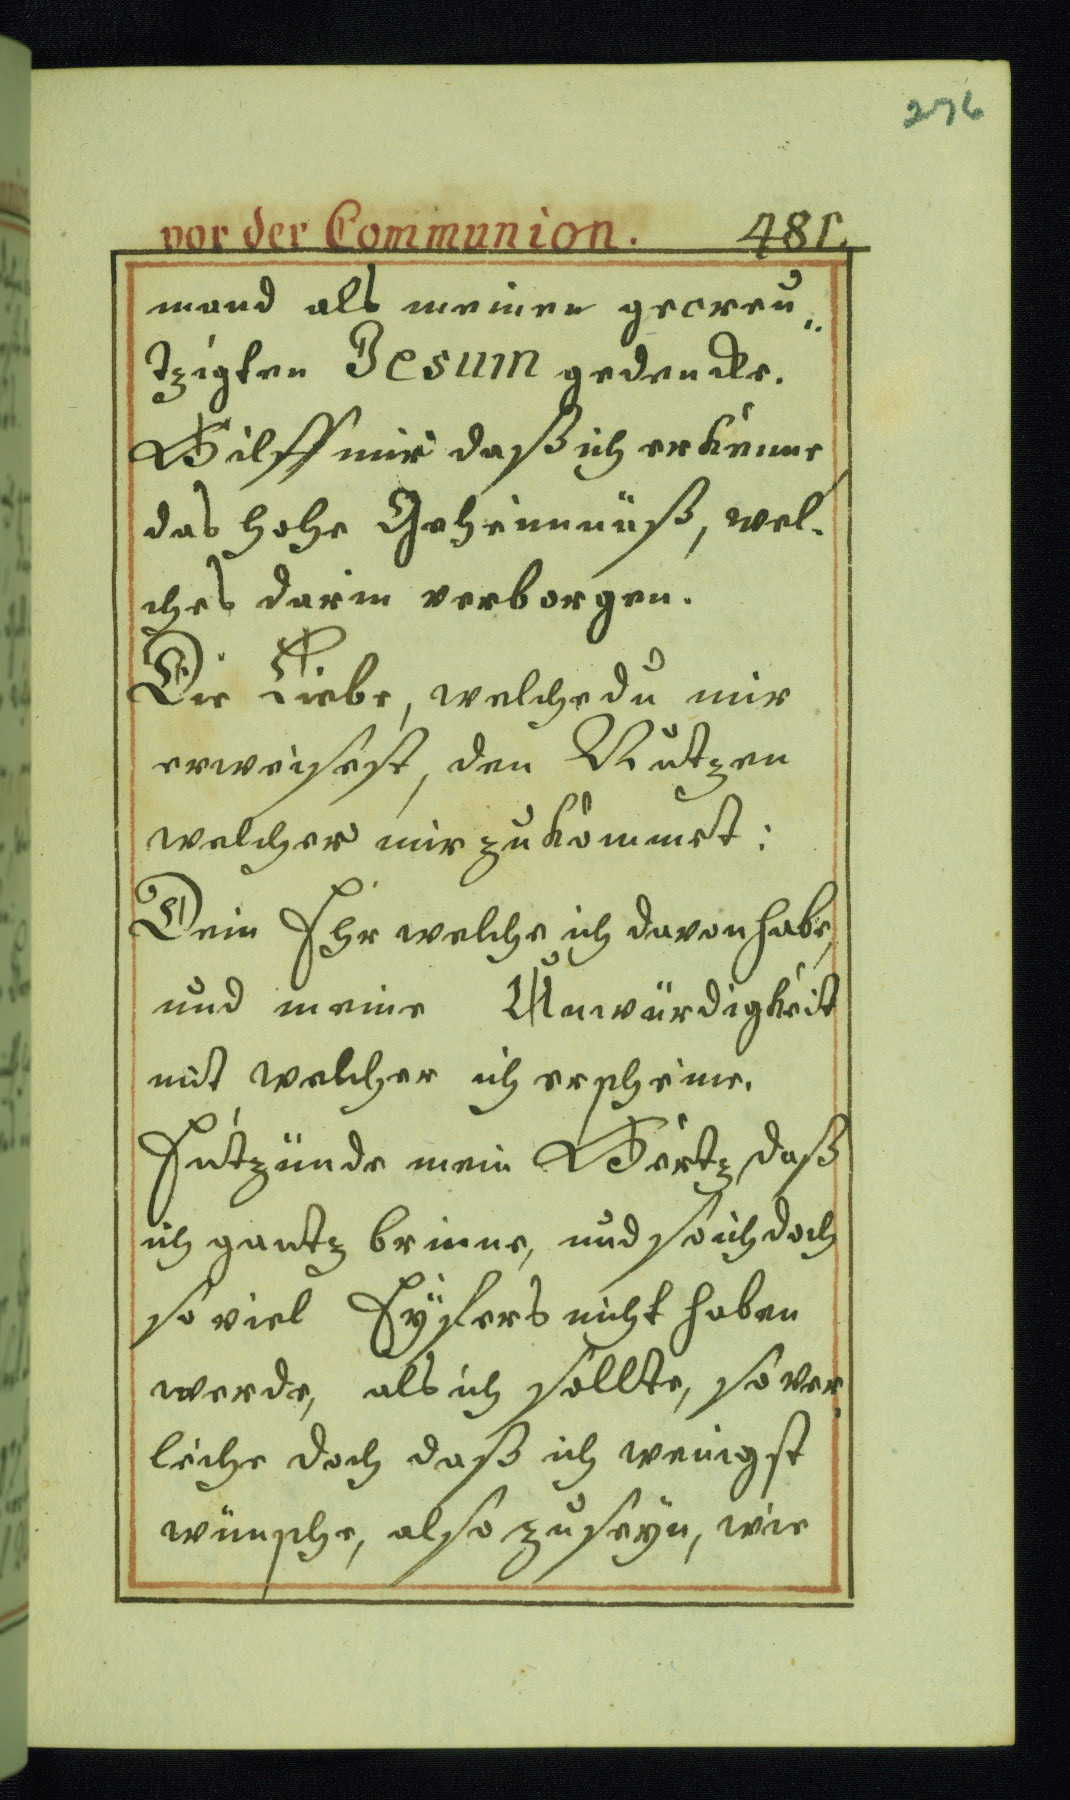 276
vor der Communion. 481.
mand als meinen gecreu„
tzigten Jesum gedencke.
Hilff mir daß ich erkenne
das hohe Geheimnüß, wel-
ches darin verborgen.
Die Liebe, welche du mir
erweisest, den Nutzen
welcher mir zukommet:
Dein Ehr welche ich davon habe,
und meine Unwürdigkeit
mit welcher ich erscheine.
Entzünde mein Hertz daß
ich gantz brinne, und so ich doch
so viel Eyfers nicht haben
werde, als ich sollte, so ver„
leihe doch daß ich wenigst
wünsche, also zu seyn, wie